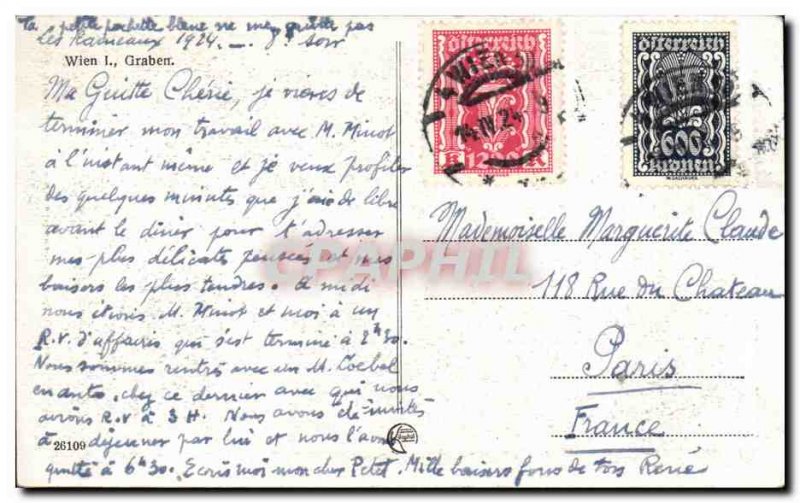 Ta petite pochette bleue ne me quitte pas
Les Rameaux 1924 - 8h soir
Wien I., Graben.
Ma Guitte Chérie, je viens de
terminer mon travail avec M. Minot
à l'instant même et je veux profiter
des quelques minutes que j'ai de libre
avant le diner pour t'adresser
mes plus délicates pensées et mes
baisers les plus tendres. A midi
nous étions M. Minot et moi à un
R.V. d'affaires qui s'est terminé à 2h30.
Nous sommes rentrés avec un M. Loebel
ensuite, chez ce dernier avec qui nous
avions R.V à 3 H. Nous avons été invités
à déjeuner par lui et nous l'avons
quitté à 6h30. Ecris moi mon cher Petit. Mille baisers fous de ton René
26109
österreich
WIEN
14.IV.24
K 1200 K
österreich
WIEN
600
kronen
Mademoiselle Marguerite Claude
118 Rue du Chateau
Paris
France
CPAPHIL